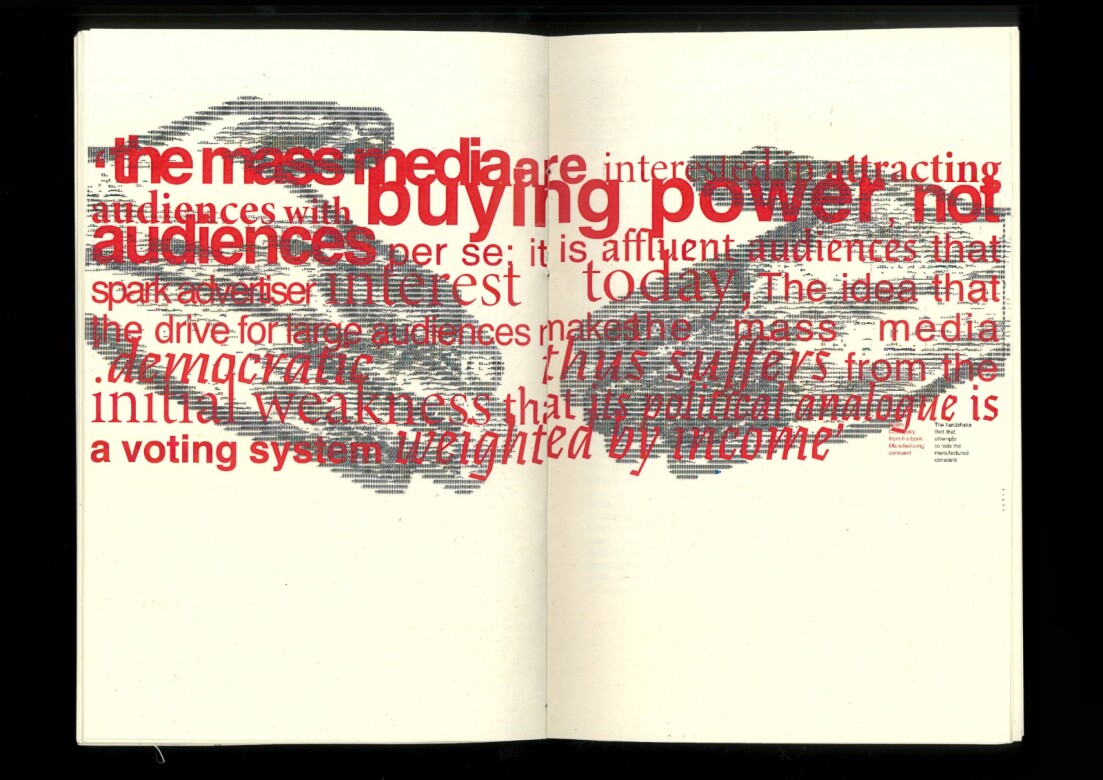 'the mass media are interested in attracting
audiences with buying power, not
audiences per se; it is affluent audiences that
spark advertiser interest today, The idea that
the drive for large audiences makes the mass media
'democratic thus suffers from the
initial weakness that its political analogue is
a voting system weighted by income'
from his book
Manufacturing
consent
The handshake
that that
attempts
to hide the
manufactured
consent.